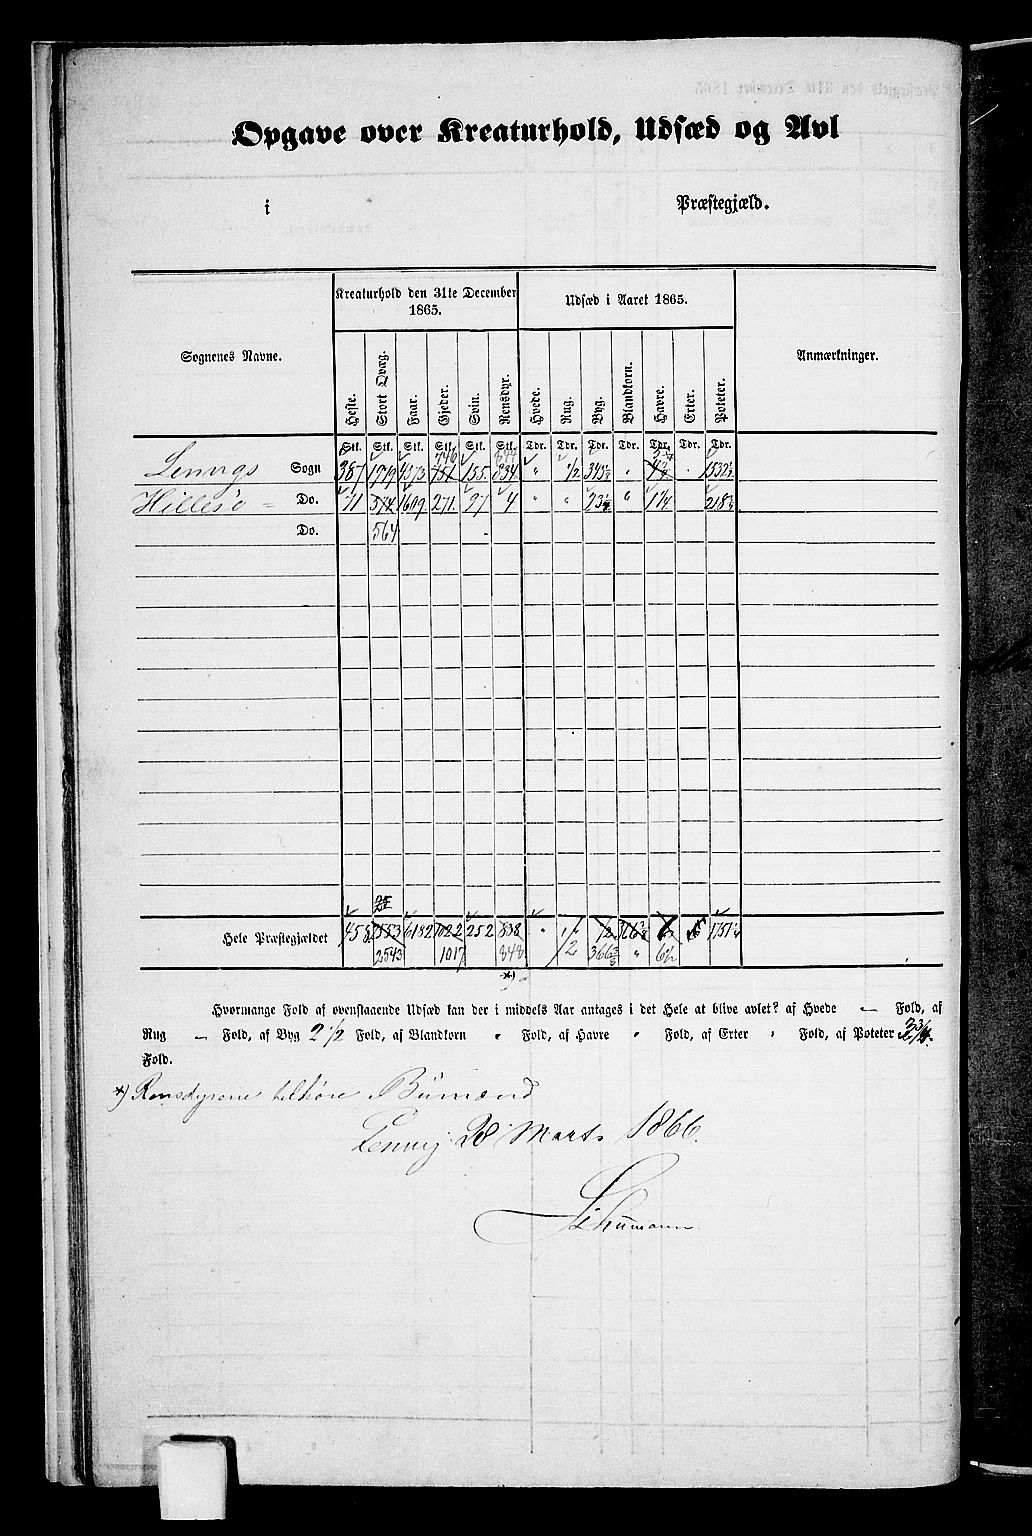 Opgave over Kreaturhold, Udsæd og Avl
i Præstegjæld.
Sognenes Navne. Kreaturhold den 31te December 1865. Udsæd i Aaret 1865. Anmærkninger.
Heste. Stort Qvæg. Faar. Gjeder. Svin. Rensdyr. Hvede. Rug. Byg. Blandkorn. Havre. Erter. Poteter.
Stk. Stk. Stk. Stk. Stk. Stk. Tdr. Tdr. Tdr. Tdr. Tdr. Tdr. Tdr.
746 844
Lenvigs Sogn 387 1979 4573 751 155 834 " 1/2 343½ " " 1532½
Hillesø = Do. 71 574 1609 271. 97 4 " " 23½ " 1¾ 218¾
Do. 564
Hele Præstegjældet 458 2553 6182 1022 252 838 " 1/2 1751¼
2543 1017 848 366⅜ " 6½
*)
Hvormange Fold af ovenstaaende Udsæd kan der i middels Aar antages i det Hele at blive avlet? af Hvede — Fold, af
Rug — Fold, af Byg 2 1/2 Fold, af Blandkorn " Fold, af Havre " Fold, af Erter " Fold, af Poteter 3¾.
Fold.
*) Rensdyrene tilhøre Bümænd
Lenvig 28 Marts 1866.
Schümann